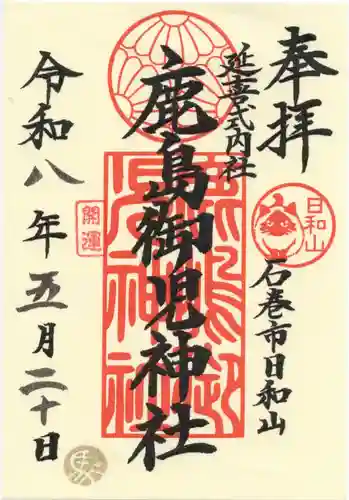 奉拝
延喜式内社
石巻市日和山
日和山
鹿島御児神社
開運
令和八年五月二十日